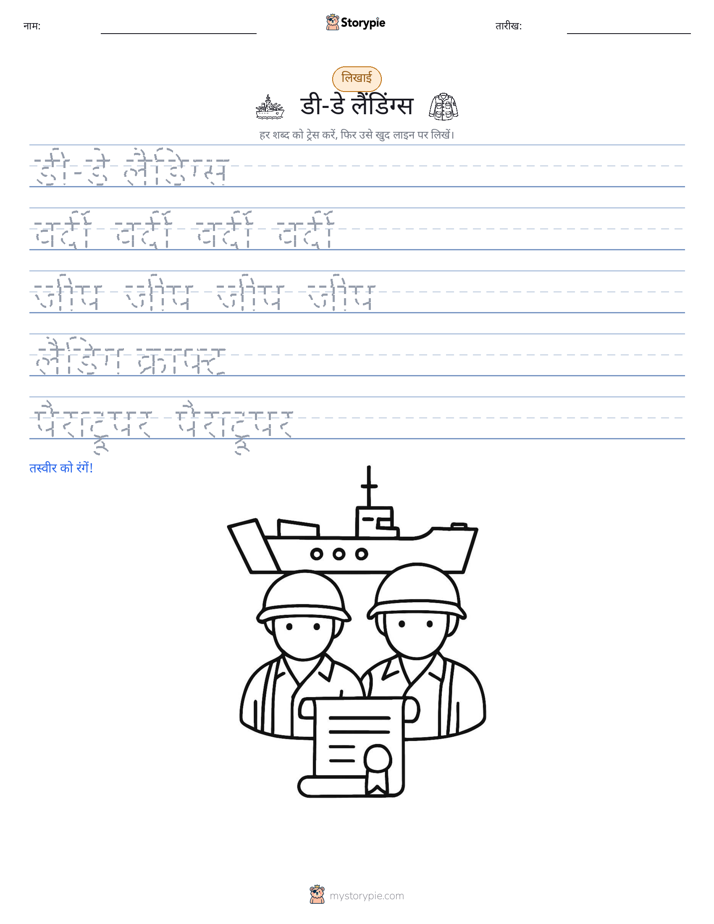 नाम: Storypie तारीख:
लिखाई
डी-डे लैंडिंग्स
हर शब्द को ट्रेस करें, फिर उसे खुद लाइन पर लिखें।
डी-डे लैंडिंग्स
वर्दी वर्दी वर्दी वर्दी
जीप जीप जीप जीप
लैंडिंग क्राफ्ट
पैराट्रूपर पैराट्रूपर
तस्वीर को रंगें!
mystorypie.com